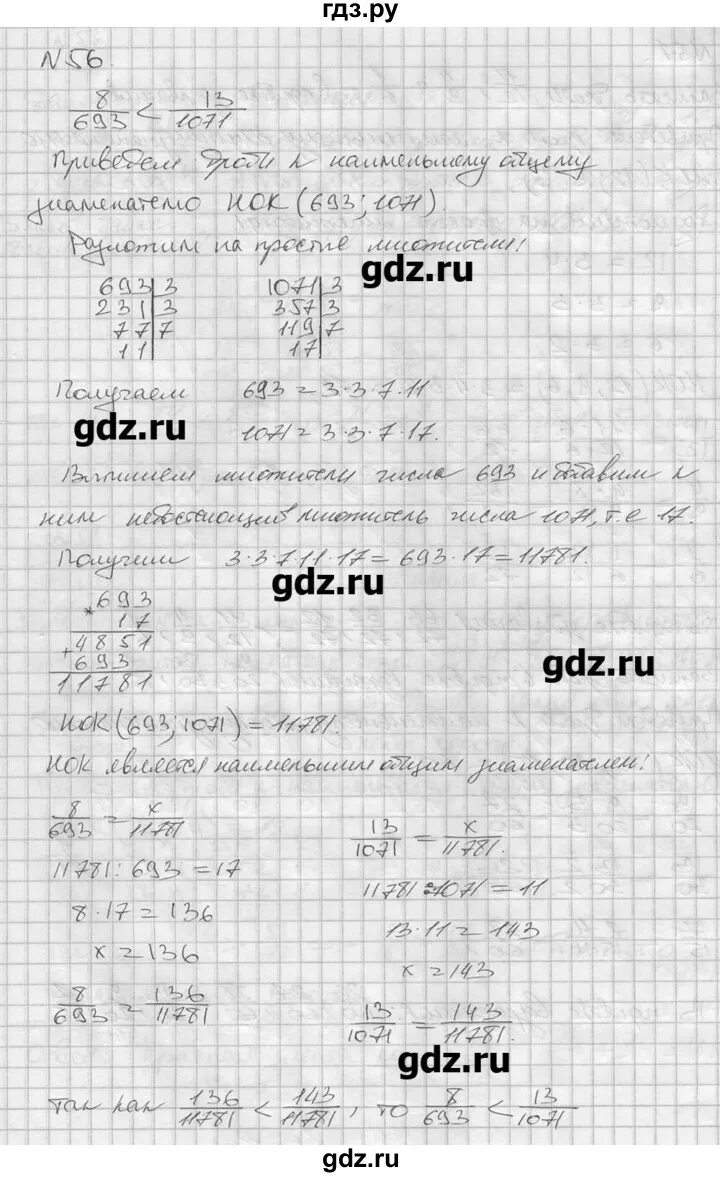 гдз.ру
N 56.
8/693 < 13/1071
Приведем дроби к наименьшему общему
знаменателю НОК (693; 1071).
Разложим на простые множители!
gdz.ru
693 | 3 1071 | 3
231 | 3 357 | 3
77 | 7 119 | 7
11 | 17 |
Получаем 693 = 3·3·7·11
gdz.ru
1071 = 3·3·7·17.
Выпишем множители числа 693 и добавим к
ним недостающий множитель числа 1071, т.е 17.
Получим 3·3·7·11·17 = 693·17 = 11781.
gdz.ru
× 693
17
+ 4851
693
11781
gdz.ru
НОК (693; 1071) = 11781.
НОК является наименьшим общим знаменателем!
8/693 = x/11781 13/1071 = x/11781.
11781 : 693 = 17 11781 : 1071 = 11
8·17 = 136 13·11 = 143
x = 136 x = 143
8/693 = 136/11781 13/1071 = 143/11781.
gdz.ru
Так как 136/11781 < 143/11781, то 8/693 < 13/1071
gdz.ru